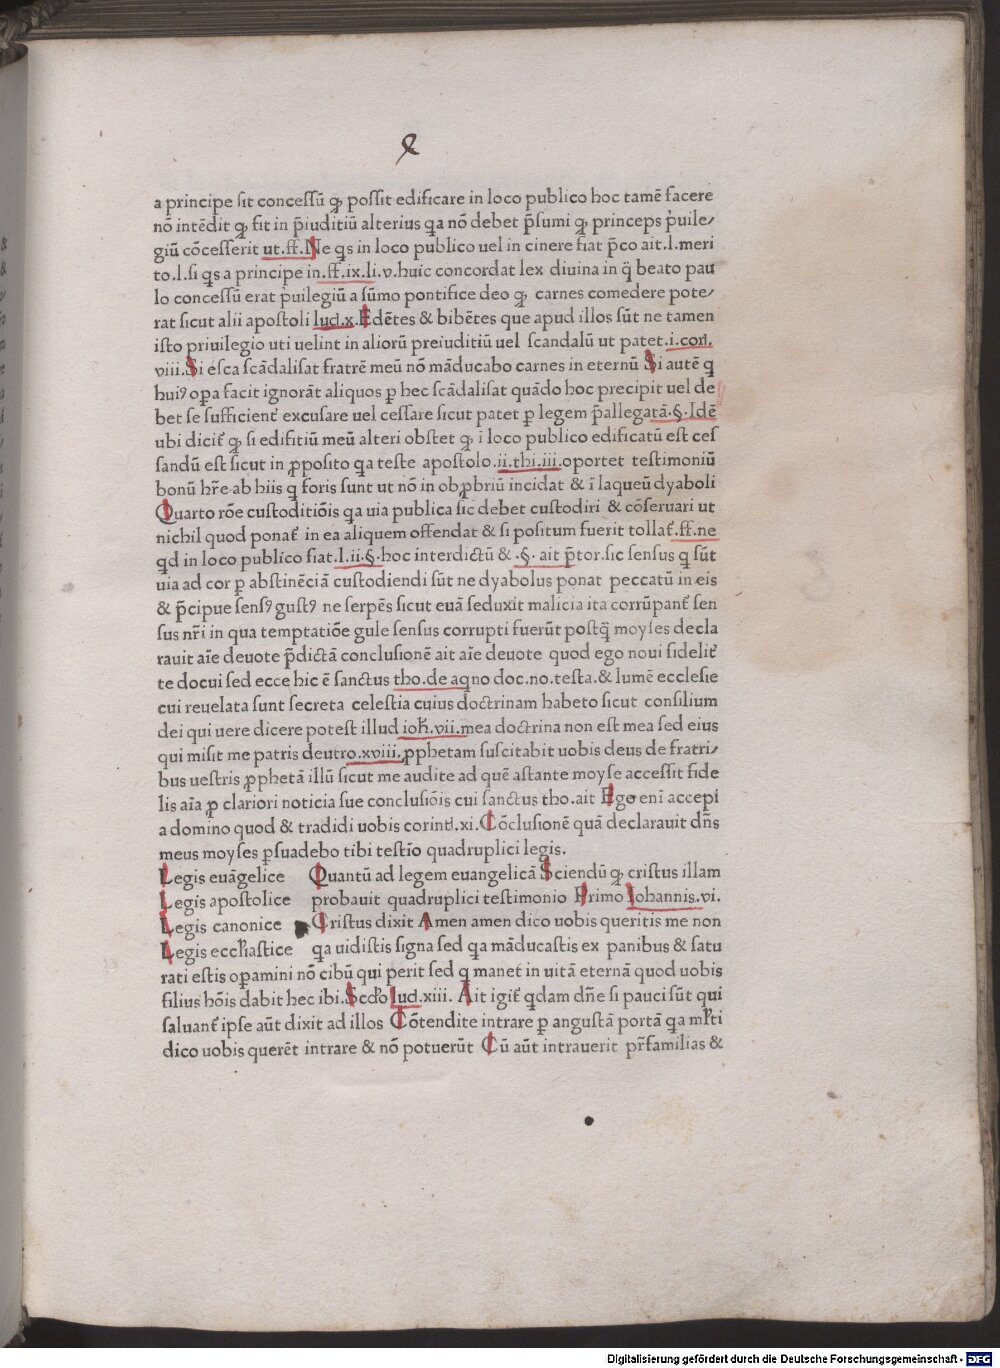 a principe sit concessū ꝙ possit edificare in loco publico hoc tamē facere
nō intēdit ꝙ fit in p̄iuditiū alterius qa nō debet p̄sumi ꝙ princeps p̓uile⸗
giū cōcesserit ut.ff.Ne qs in loco publico uel in cinere fiat p̄co ait.l.meri
to.l.si qs a principe in.ff.ix.li.v.huic concordat lex diuina in q̄ beato pau
lo concessū erat p̓uilegiū a sūmo pontifice deo ꝙ carnes comedere pote⸗
rat sicut alii apostoli lud.x.Edētes & bibētes que apud illos sūt ne tamen
isto priuilegio uti uelint in aliorū preiuditiū uel scandalū ut patet.i.cori.
viii.Si esca scādalisat fratrē meū nō māducabo carnes in eternū Si autē q
huiꝰ oꝑa facit ignorāt aliquos ꝑ hec scādalisat quādo hoc precipit uel de
bet se sufficient̓ excusare uel cessare sicut patet ꝑ legem p̄allegatā.§.Idē
ubi dicit̓ ꝙ si edifitiū meū alteri obstet ꝙ ī loco publico edificatū est ces
sandū est sicut in ꝓposito qa teste apostolo.ii.thi.iii.oportet testimoniū
bonū hr̄e ab hiis q foris sunt ut nō in obꝓbriū incidat & ī laqueū dyaboli
Quarto rōe custoditiōis qa uia publica sic debet custodiri & cōseruari ut
nichil quod ponat̓ in ea aliquem offendat & si positum fuerit tollat̓.ff.ne
qd in loco publico fiat.l.ii.§.hoc interdictū & .§. ait p̄tor.sic sensus q sūt
uia ad cor ꝑ abstinēciā custodiendi sūt ne dyabolus ponat peccatū in eis
& p̄cipue sensꝰ gustꝰ ne serpēs sicut euā seduxit malicia ita corrūpant̓ sen
sus nr̄i in qua temptatiōe gule sensus corrupti fuerūt postq̄ moyses decla
rauit aīe deuote p̄dictā conclusionē ait aīe deuote quod ego noui fidelit̓
te docui sed ecce hic ē sanctus tho.de aqno doc.no.testa.& lumē ecclesie
cui reuelata sunt secreta celestia cuius doctrinam habeto sicut consilium
dei qui uere dicere potest illud ioh̄.vii.mea doctrina non est mea sed eius
qui misit me patris deutro.xviii.ꝓphetam suscitabit uobis deus de fratri⸗
bus uestris ꝓphetā illū sicut me audite ad quē astante moyse accessit fide
lis aīa ꝑ clariori noticia sue conclusiōis cui sanctus tho.ait Ego enī accepi
a domino quod & tradidi uobis corint̄.xi.Cōclusionē quā declarauit dn̄s
meus moyses ꝑsuadebo tibi testīo quadruplici legis.
Legis euāgelice Quantū ad legem euangelicā Sciendū ꝙ cristus illam
Legis apostolice probauit quadruplici testimonio Primo Iohannis.vi.
Legis canonice Cristus dixit Amen amen dico uobis queritis me non
Legis eccl̄iastice qa uidistis signa sed qa māducastis ex panibus & satu
rati estis oꝑamini nō cibū qui ꝑerit sed q manet in uitā eternā quod uobis
filius hōis dabit hec ibi.Scdo Lud.xiii. Ait igit̓ qdam dn̄e si pauci sūt qui
saluant̓ ipse aūt dixit ad illos Cōtendite intrare ꝑ angustā portā qa ml̄ti
dico uobis querēt intrare & nō potuerūt Cū aūt intrauerit pr̄familias &
Digitalisierung gefördert durch die Deutsche Forschungsgemeinschaft - DFG